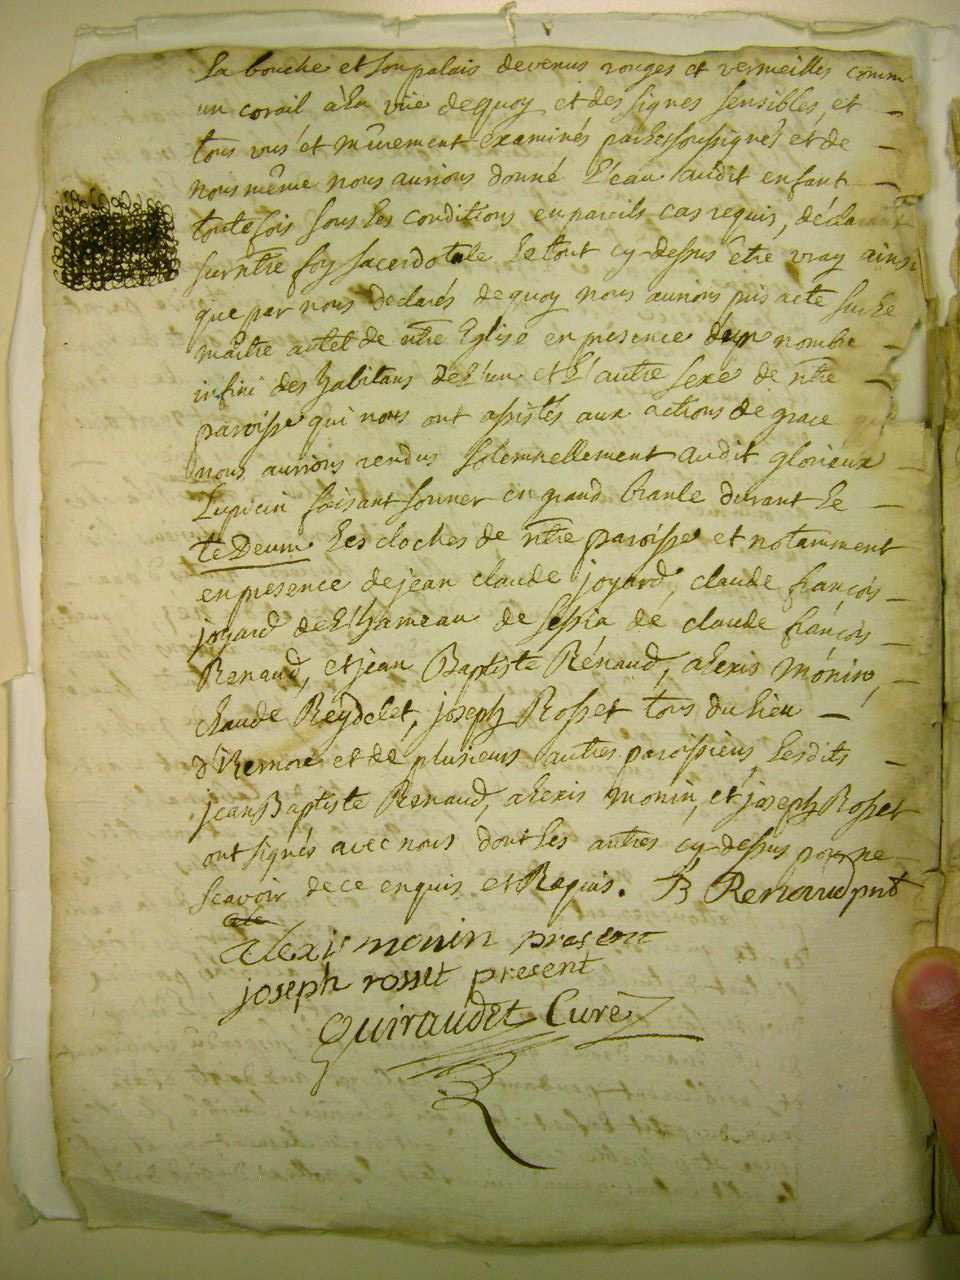 la bouche et son palais devenus rouges et vermeilles comm
un corail à la vüe de quoy et des signes sensibles, et
tous vus et mûrement examinés par les soussignés et de
nous même nous aurions donné l'eau audit enfant
toutefois sous les conditions en pareils cas requis, déclarant
sur ntre foy sacerdotale le tout cy-dessus être vray ainsi
que par nous declarés de quoy nous aurions pris acte sur le
maitre autel de ntre Eglise en presence d'un nombre
infini des habitans de l'un et l'autre sexe de ntre
paroisse qui nous ont assistés aux actions de grace que
nous aurions rendus solemnellement audit glorieux
Lupicin faisant sonner en grand branle durant le
te Deum les cloches de ntre paroisse et notamment
en presence de jean claude joyard, claude françois
joyard de l'hameau de sessia de claude françois
Renaud, et jean Baptiste Rénaud, alexis mónin,
claude Reydelet, joseph Rosset tous du lieu
d'Remone et de plusieurs autres paroissiens lesdits
jean Baptiste Renaud, alexis monin, et joseph Rosset
ont signés avec nous dont les autres cy-dessus pour ne
scavoir de ce enquis et Requis. JB Renaud pnt
alexis monin present
joseph rosset present
Guiraudet Curé